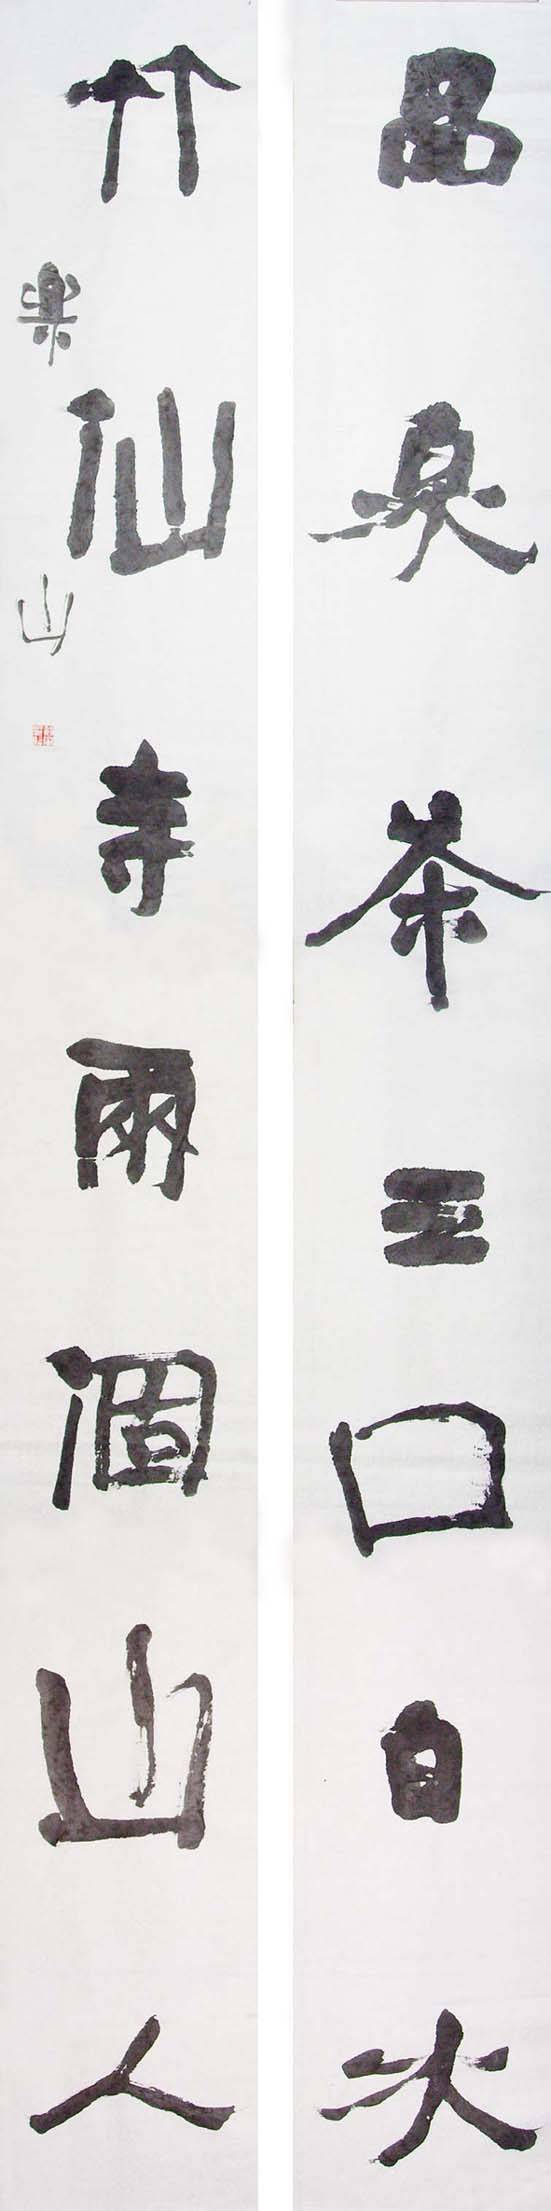 品泉茶三口白水
竹仙寺兩個山人
樂山